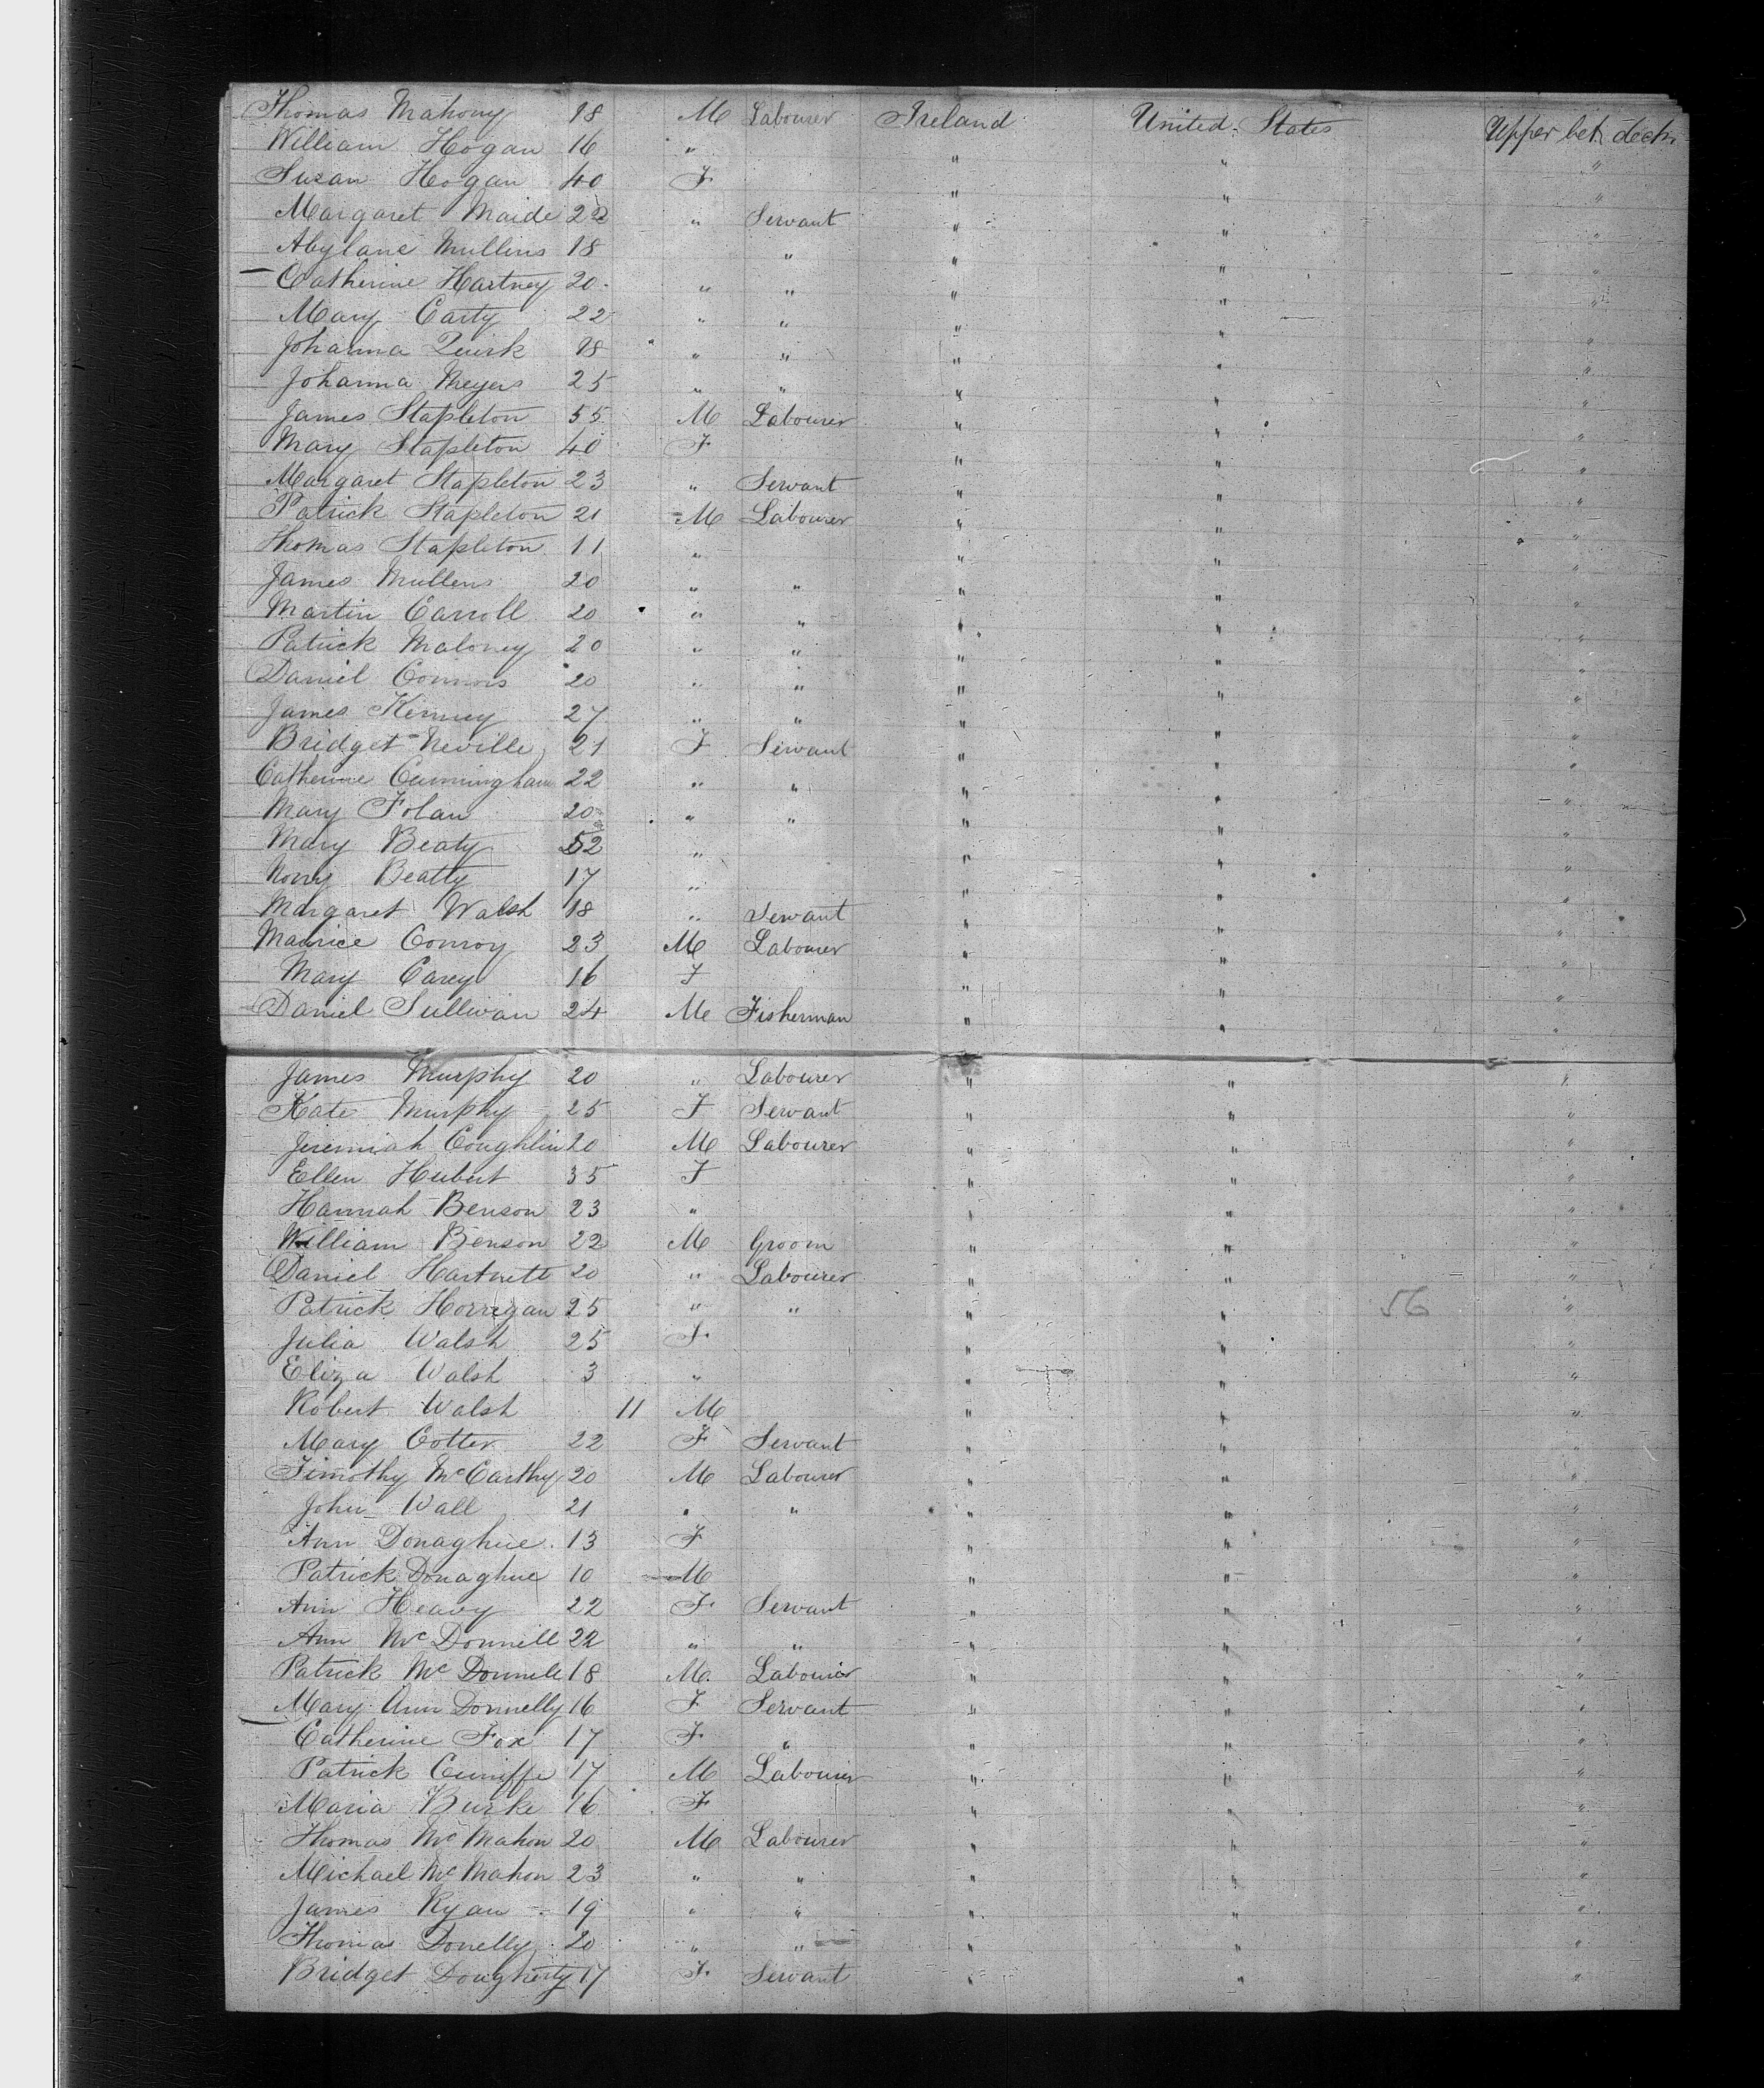 Thomas Mahony 18 M Labourer Ireland United States Upper bet. deck
William Hogan 16 " " " "
Susan Hogan 40 F " " "
Margaret Maide 22 " Servant " " "
Abylane Mullins 18 " " " "
Catherine Hartney 20 " " " " "
Mary Carty 22 " " " " "
Johanna Quirk 18 " " " " "
Johanna Meyers 25 " " " " "
James Stapleton 55 M Labourer " " "
Mary Stapleton 40 F " " "
Margaret Stapleton 23 " Servant " " "
Patrick Stapleton 21 M Labourer " " "
Thomas Stapleton 11 " " " "
James Mullens 20 " " " " "
Martin Carroll 20 " " " " "
Patrick Maloney 20 " " " " "
Daniel Connors 20 " " " " "
James Kenney 27 " " " " "
Bridget Neville 21 F Servant " " "
Catherine Cunningham 22 " " " " "
Mary Folan 20 " " " " "
Mary Beaty 52 " " " "
Nony Beatty 17 " " " "
Margaret Walsh 18 " Servant " " "
Maurice Conroy 23 M Labourer " " "
Mary Carey 16 F " " "
Daniel Sullivan 24 M Fisherman " " "
James Murphy 20 " Labourer " " "
Kate Murphy 25 F Servant " " "
Jeremiah Coughlin 20 M Labourer " " "
Ellen Hubert 35 F " " "
Hannah Benson 23 " " " "
William Benson 22 M Groom " " "
Daniel Hartnett 20 " Labourer " " "
Patrick Horrigan 25 " " " " 56 "
Julia Walsh 25 F " " "
Eliza Walsh 3 " " " "
Robert Walsh 11 M " " "
Mary Cotter 22 F Servant " " "
Timothy McCarthy 20 M Labourer " " "
John Wall 21 " " " " "
Ann Donaghue 13 F " " "
Patrick Donaghue 10 M " " "
Ann Heavy 22 F Servant " " "
Ann McDonnell 22 " " " " "
Patrick McDonnell 18 M. Labourer " " "
Mary Ann Donnelly 16 F Servant " " "
Catherine Fox 17 F " " " "
Patrick Cuniffe 17 M Labourer " " "
Maria Burke 16 F " " "
Thomas McMahon 20 M Labourer " " "
Michael McMahon 23 " " " " "
James Ryan 19 " " " " "
Thomas Donelly 20 " " " " "
Bridget Dougherty 17 F Servant " " "